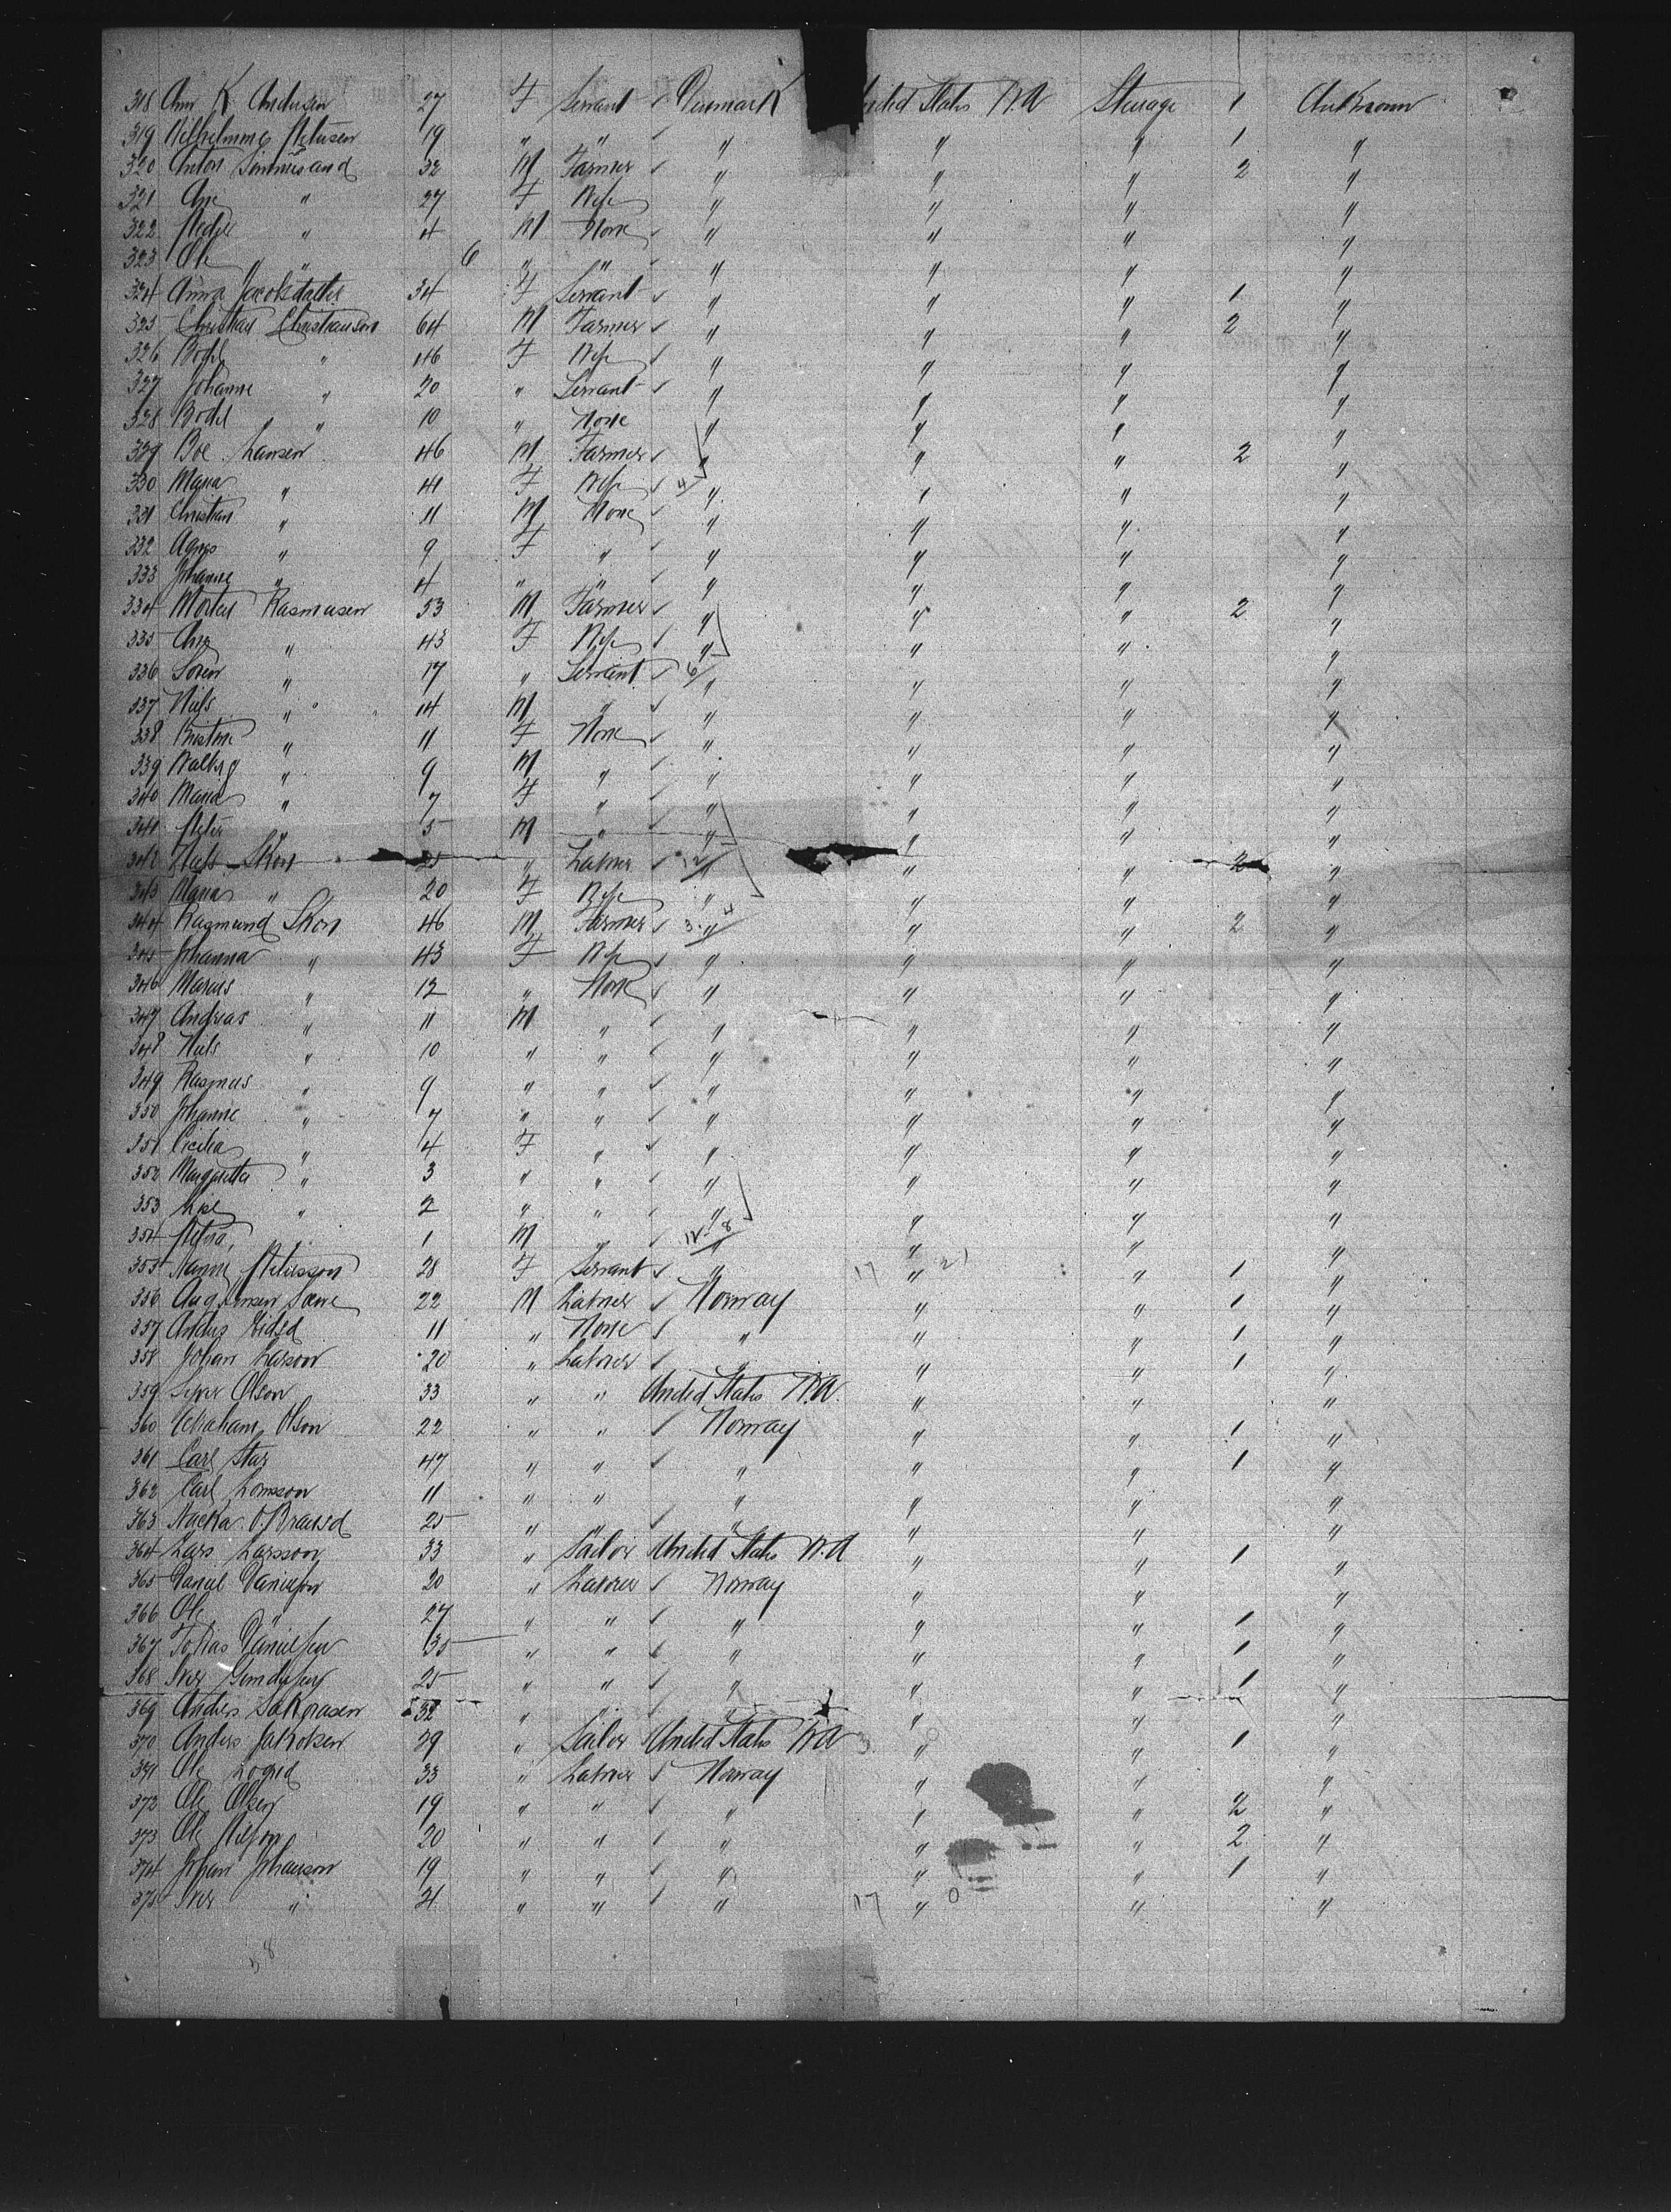 318 Ann K Andersen 27 F Servant Denmark United States N.A Steerage 1 Unknown
319 Wilhelmine Petersen 19 " " " " " 1 "
320 Anton 32 M Farmer " " " 2 "
321 Ane " 27 F Wife " " " "
322 Peder " 4 M None " " " "
323 Ole " 6 " " " " " "
324 Anna Jacobsdatter 34 F Servant " " " 1 "
325 Christian Christianson 64 M Farmer " " " 2 "
326 Bodil " 46 F Wife " " " "
327 Johanne " 20 " Servant " " " "
328 Bodil " 10 " None " " " "
329 Boe Hansen 46 M Farmer " " " 2 "
330 Maria " 41 F Wife 4/ " " " "
331 Christian " 11 M None " " " "
332 Agnes " 9 F " " " " "
333 Johanne " 4 " " " " " "
334 Morten Rasmusen 53 M Farmer " " " 2 "
335 Ane " 43 F Wife " " " "
336 Soren " 17 " Servant 6/ " " " "
337 Niels " 14 M " " " " "
338 Kirstine " 11 F None " " " "
339 Walborg " 9 M " " " " "
340 Maria " 7 F " " " " "
341 Peter " 5 M " " " " "
342 Niels Skon 25 " Laborer 12/ " " " 2 "
343 Maria " 20 F Wife " " " "
344 Rasmund Skon 46 M Farmer " " " 2 "
345 Johanna " 43 F Wife " " " "
346 Marius " 12 " None " " " "
347 Andreas " 11 M " " " " "
348 Niels " 10 " " " " " "
349 Rasmus " 9 " " " " " "
350 Johanne " 7 " " " " " "
351 Cicilia " 4 F " " " " "
352 Margaretta " 3 " " " " " "
353 Lise " 2 " " " " " "
354 Petra 1 M " " " " "
355 Hanne Petersson 28 F Servant " 17 " 21 " 1 "
356 22 M Laborer Norway " " 1 "
357 Anders 11 " None " " " 1 "
358 Johan Larson 20 " Laborer " " " 1 "
359 Olson 33 " " United States N.A. " " "
360 Abraham Olson 22 " " Norway " " 1 "
361 Carl Star 47 " " " " " 1 "
362 Carl 11 " " " " " "
363 25 " " " " " "
364 Lars Larsson 33 " Sailor United States N.A " " 1 "
365 Daniel Danielson 20 " Laborer Norway " " "
366 Ole " 27 " " " " " 1 "
367 Tobias Danielsen 35 " " " " " 1 "
368 Iver 25 " " " " " 1 "
369 Anders 32 " " " " " "
370 Anders Jakobsen 29 " Sailor United States N.A 3 " 0 " 1 "
371 Ole 33 " Laborer Norway " " "
372 Ole Olsen 19 " " " " " 2 "
373 Ole Nilson 20 " " " " " 2 "
374 Johan Johanson 19 " " " " " 1 "
375 Iver " 21 " " " 17 " 0 " "
58